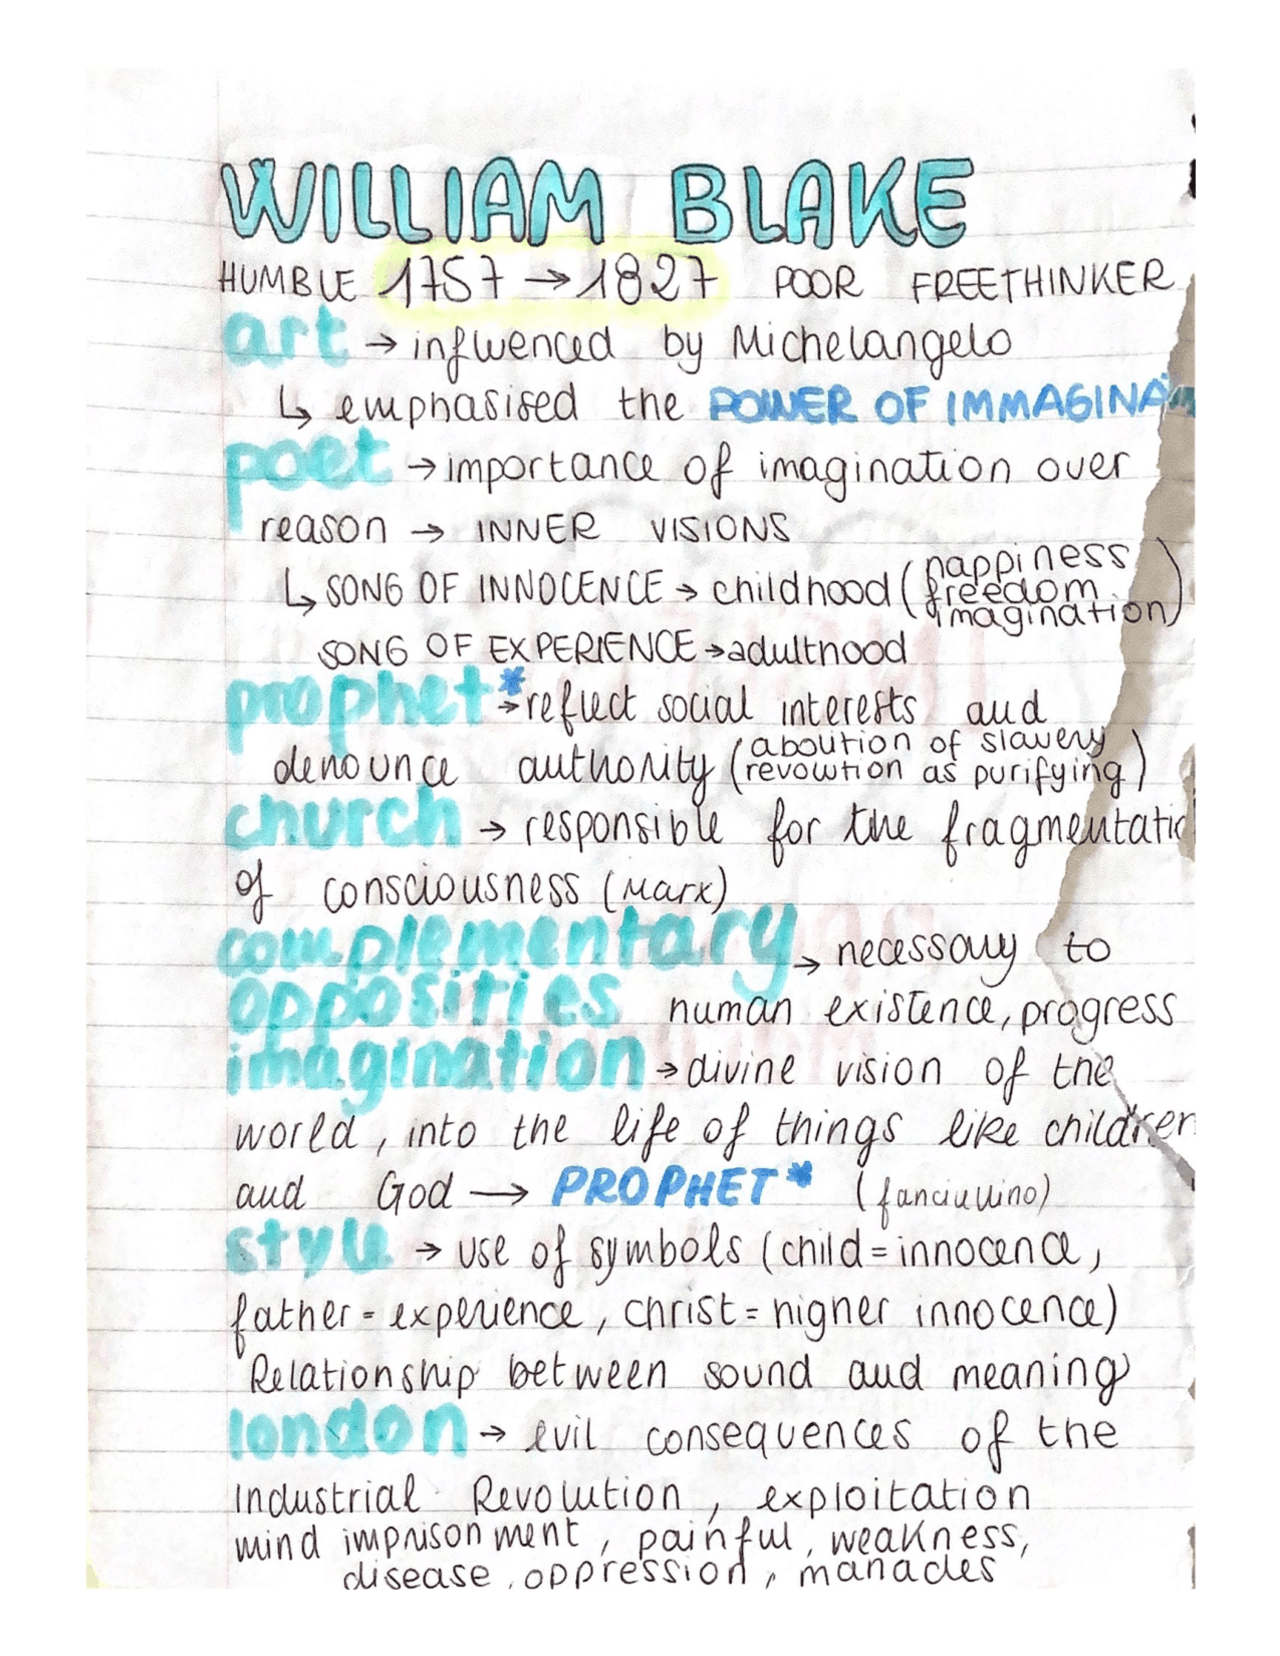 WILLIAM BLAKE
HUMBLE 1757 → 1827 POOR FREETHINKER
art → influenced by Michelangelo
↳ emphasised the POWER OF IMMAGINA
poet → importance of imagination over
reason → INNER VISIONS
↳ SONG OF INNOCENCE → childhood (happiness
freedom
imagination)
SONG OF EXPERIENCE → adulthood
prophet* → reflect social interests and
denounce authority (abolition of slavery
revolution as purifying)
church → responsible for the fragmentatio
of consciousness (Marx)
complementary → necessary to
opposities human existence, progress
imagination → divine vision of the
world, into the life of things like children
and God → PROPHET* (fanciullino)
style → use of symbols (child = innocence,
father = experience, christ = higher innocence)
Relationship between sound and meaning
london → evil consequences of the
Industrial Revolution, exploitation
mind imprisonment, painful, weakness,
disease, oppression, manacles